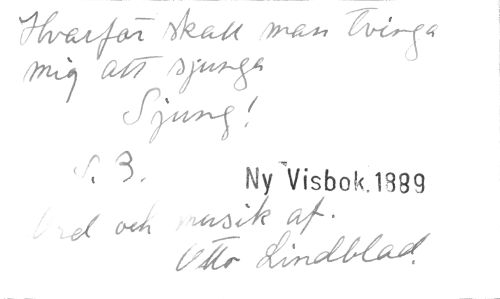 Hvarför skall man tvinga
mig att sjunga
Sjung!
S. 3.
Ny Visbok. 1889
Ord och musik af.
Otto Lindblad.